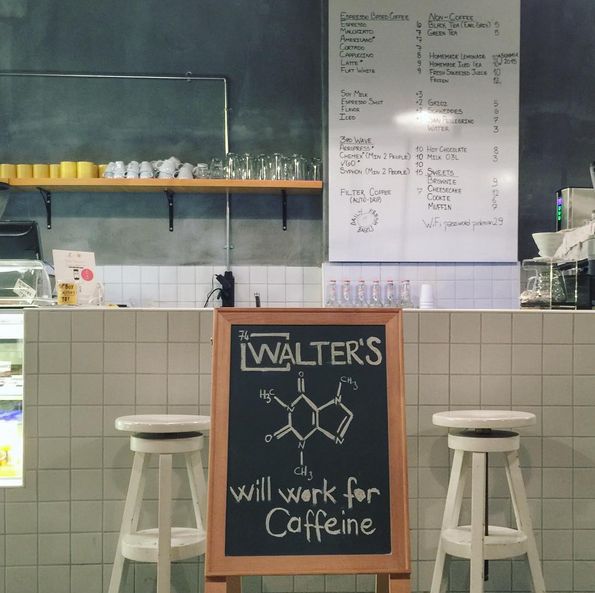 Espresso Based Coffee
Espresso 6
Macchiato 7
Americano* 7
Cortado 7
Cappuccino 8
Latte* 9
Flat White 9
Soy Milk +3
Espresso Shot +2
Flavor +2
Iced +1
3rd Wave
Aeropress* 10
Chemex* (Min 2 People) 10
V60* 10
Syphon (Min 2 People) 15
Filter Coffee 7
(Auto-Drip)
Non-Coffee
Black Tea (Earl Grey) 5
Green Tea 5
Homemade Lemonade
Homemade Iced Tea
Fresh Squeezed Juice 10
Frozen 12
6
Schweppes 6
San Pellegrino 7
Water 3
Hot Chocolate 8
Milk 03L 3
Sweets
Brownie
Cheesecake 12
Cookie 6
Muffin 7
WiFi password
74
WALTER'S
O
CH3
H3C
N
N
O
N
N
CH3
will work for
Caffeine